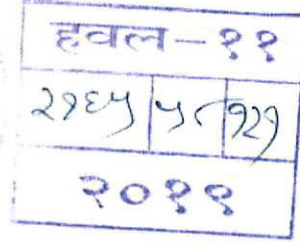 हवल-११
२१६५ ५८ १२१
२०१९